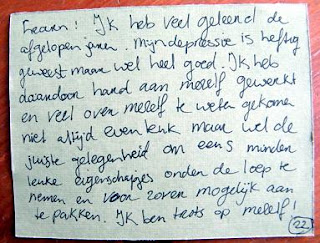 ! Ik heb veel geleerd de
afgelopen jaren. Mijn depressie is heftig
geweest maar wel heel goed. Ik heb
daardoor hard aan mezelf gewerkt
en veel over mezelf te weten gekomen
niet altijd even leuk maar wel de
juiste gelegenheid om eens minder
leuke eigenschapjes onder de loep te
nemen en voor zover mogelijk aan
te pakken. Ik ben trots op mezelf!
22